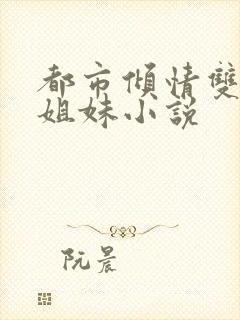 都市傾情雙
姐妹小説
阮晨